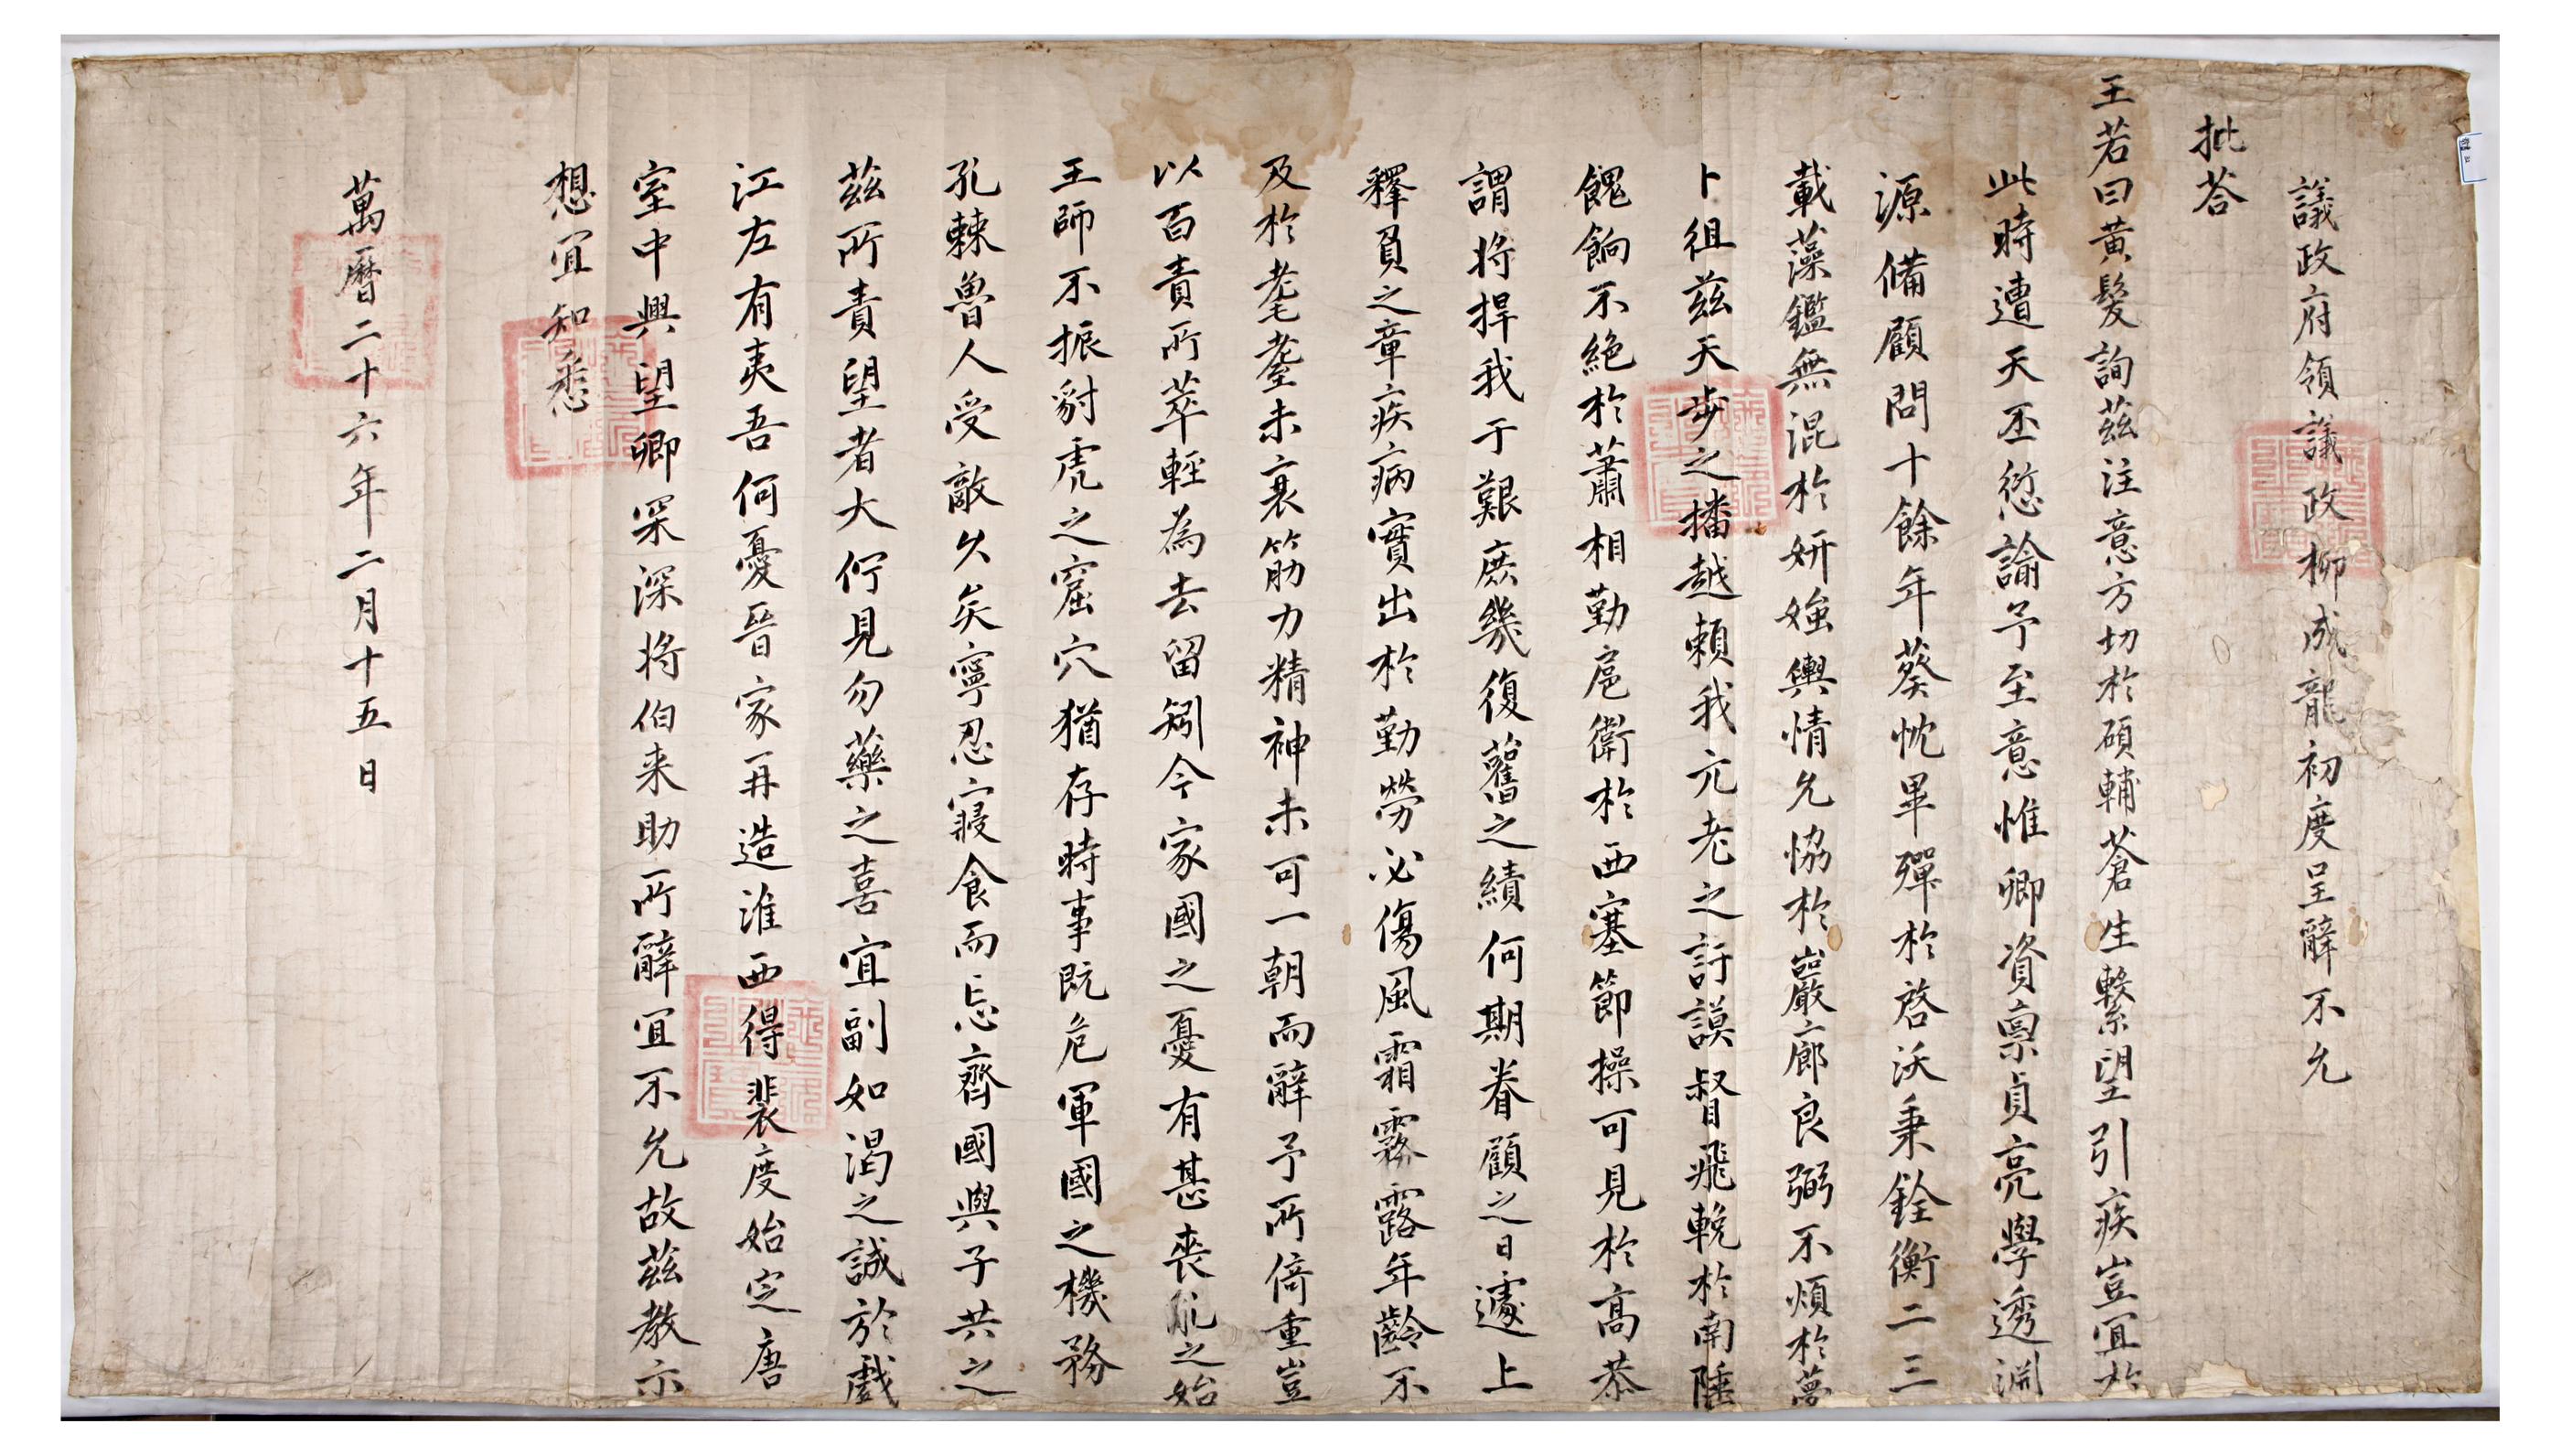 議政府領議政柳成龍初度呈辭不允
批荅
王若曰黃髮詢兹注意方切於碩輔蒼生繫望引疾豈冝於
此時遭天丕愆諭予至意惟卿資禀貞亮學透淵
源備顧問十餘年葵忱畢殫於啓沃秉銓衡二三
載藻鑑無混於妍媸輿情允恊於巖廊良弼不煩於夢
卜徂兹天步之播越賴我元老之訏謨督飛輓於南陲
餽餉不絶於蕭相勤扈衛於西塞節操可見於高恭
謂将捍我于艱庶幾復舊之績何期眷顧之日遽上
釋負之章疾病實出於勤勞必傷風霜霧露年齡不
及於耄耋未衰筋力精神未可一朝而辭予所倚重豈
以百責所萃輕為去留矧今家國之憂有甚喪𠒋之始
王師不振豺虎之窟穴猶存時事既危軍國之機務
孔棘魯人受敵久矣寧忍寢食而忘齊國與子共之
兹所責望者大佇見勿藥之喜宜副如渴之誠於戲
江左有夷吾何憂晉家再造淮西得裴度始定唐
室中興望卿深深将伯来助所辭宜不允故兹教示
想冝知悉
萬曆二十六年二月十五日